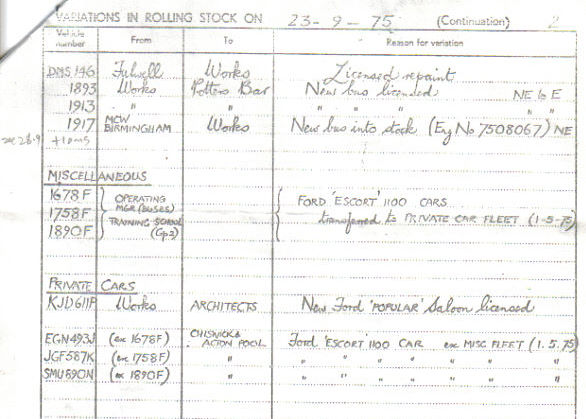 VARIATIONS IN ROLLING STOCK ON 23-9-75 (Continuation) 2
Vehicle number From To Reason for variation
DMS 146 Fulwell Works Licensed repaint
1893 Works Potters Bar New bus licensed NE to E
1913 " " " " " " "
1917 MCW BIRMINGHAM Works New bus into stock (Eng No 7508067) NE
MISCELLANEOUS
1678F OPERATING MGR (BUSES) FORD 'ESCORT' 1100 CARS
1758F TRAINING SCHOOL transferred to PRIVATE CAR FLEET (1-5-75)
1890F (Gp2)
PRIVATE CARS
KJD611P Works ARCHITECTS New Ford 'POPULAR' Saloon licensed
EGN493J (ex 1678F) CHISWICK & ACTON POOL Ford 'ESCORT' 1100 CAR ex MISC FLEET (1.5.75)
JGF587K (ex 1758F) " " " " " " " "
SMU890N (ex 1890F) " " " " " " " "